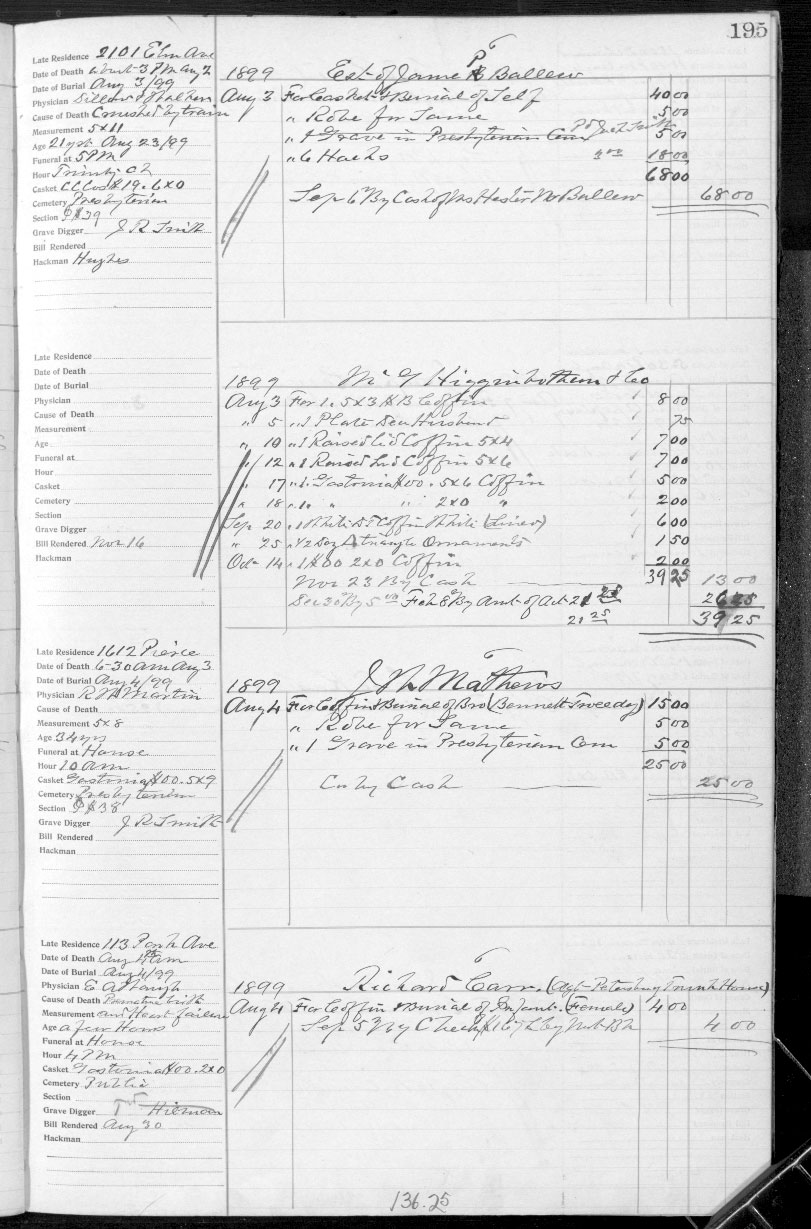 195
Late Residence 2101 Elm Ave
Date of Death about 3 PM Aug 2
Date of Burial Aug 3/99
Physician Dillard & Walker
Cause of Death Crushed by train
Measurement 5x11
Age 21 yrs Aug 23/99
Funeral at 5 PM
Hour Trinity Ch
Casket CC Cos # 19. 6x0
Cemetery Presbyterian
Section P#39
Grave Digger J R Smith
Bill Rendered
Hackman Hughes
1899 Est of Jame P Ballew
Aug 3 For Casket & Burial of Self 40 00
" Robe for Same 5 00
" 1 Grave in Presbyterian Cem Pd Jno Smith 5 00
" 6 Hacks 3 00 18 00
68 00
Sep 6 By Cash of Ms Hester M Ballew 68 00
Late Residence
Date of Death
Date of Burial
Physician
Cause of Death
Measurement
Age
Funeral at
Hour
Casket
Cemetery
Section
Grave Digger
Bill Rendered Nov 16
Hackman
1899 Higginbothem & Co
Aug 3 For 1. 5x3 Coffin 8 00
" 5 " 1 Plate Dear Husband 75
" 10 " 1 Raised Lid Coffin 5x4 7 00
" 12 " 1 Raised Lid Coffin 5x6 7 00
" 17 " 1. Gastonia #00. 5x6 Coffin 5 00
" 18 " 1. " " 2x0 " 2 00
Sep 20 " 1 White Coffin White (Lined) 6 00
" 25 " 1/2 Doz Triangle Ornaments 1 50
Oct 14 " 1 #00 2x0 Coffin 2 00
39 25
Nov 23 By Cash 13 00
Dec 30 By 5 00 Feb 8 By Amt of Act 21 25 26 25
21 25 39 25
Late Residence 1612 Pierce
Date of Death 6-30 am Aug 3
Date of Burial Aug 4/99
Physician R W Martin
Cause of Death
Measurement 5x8
Age 34 yrs
Funeral at House
Hour 10 am
Casket Gastonia #00. 5x9
Cemetery Presbyterian
Section P#38
Grave Digger J R Smith
Bill Rendered
Hackman
1899 J W Mathews
Aug 4 For Coffin & Burial of Bro (Bennett Tweedy) 15 00
" Robe for Same 5 00
" 1 Grave in Presbyterian Cem 5 00
25 00
Cr by Cash 25 00
Late Residence 113 Park Ave
Date of Death Aug 4th am
Date of Burial Aug 4/99
Physician E A Waugh
Cause of Death Premature birth
Measurement and Heart failure
Age a few Hours
Funeral at House
Hour 4 PM
Casket Gastonia #00. 2x0
Cemetery Public
Section
Grave Digger Hileman
Bill Rendered Aug 30
Hackman
1899 Richard Carr. (Agt-Petersburg Trunk House)
Aug 4 For Coffin & Burial of Infant. (Female) 4 00
Sep 5 By Check 4 00
136.25